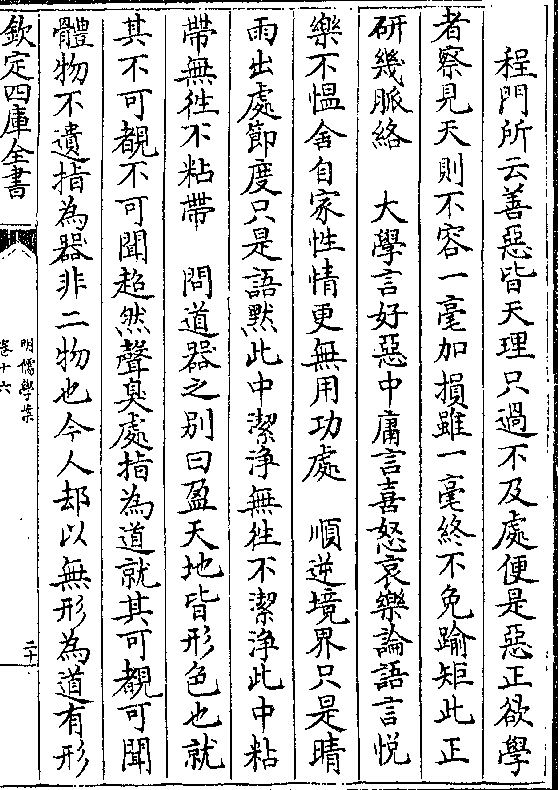 程門所云善惡皆天理只過不及處便是惡正欲學
者察見天則不容一毫加損雖一毫終不免踰矩此正
研幾脈絡　大學言好惡中庸言喜怒哀樂論語言悅
樂不慍舍自家性情更無用功處　順逆境界只是晴
雨出處節度只是語黙此中潔浄無徃不潔浄此中粘
帶無徃不粘帶　問道器之别曰盈天地皆形色也就
其不可覩不可聞超然聲臭處指為道就其可覩可聞
體物不遺指為器非二物也今人却以無形為道有形
欽定四庫全書
明儒學案
卷十六
二十